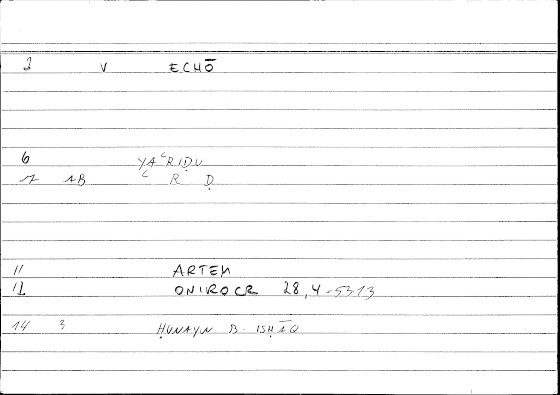 2 V ECHŌ
6 YAʿRIḌU
7 1B ʿ R Ḍ
11 ARTEM
12 ONIROCR 28,4-5313
14 3 ḤUNAYN B. ISḤĀQ